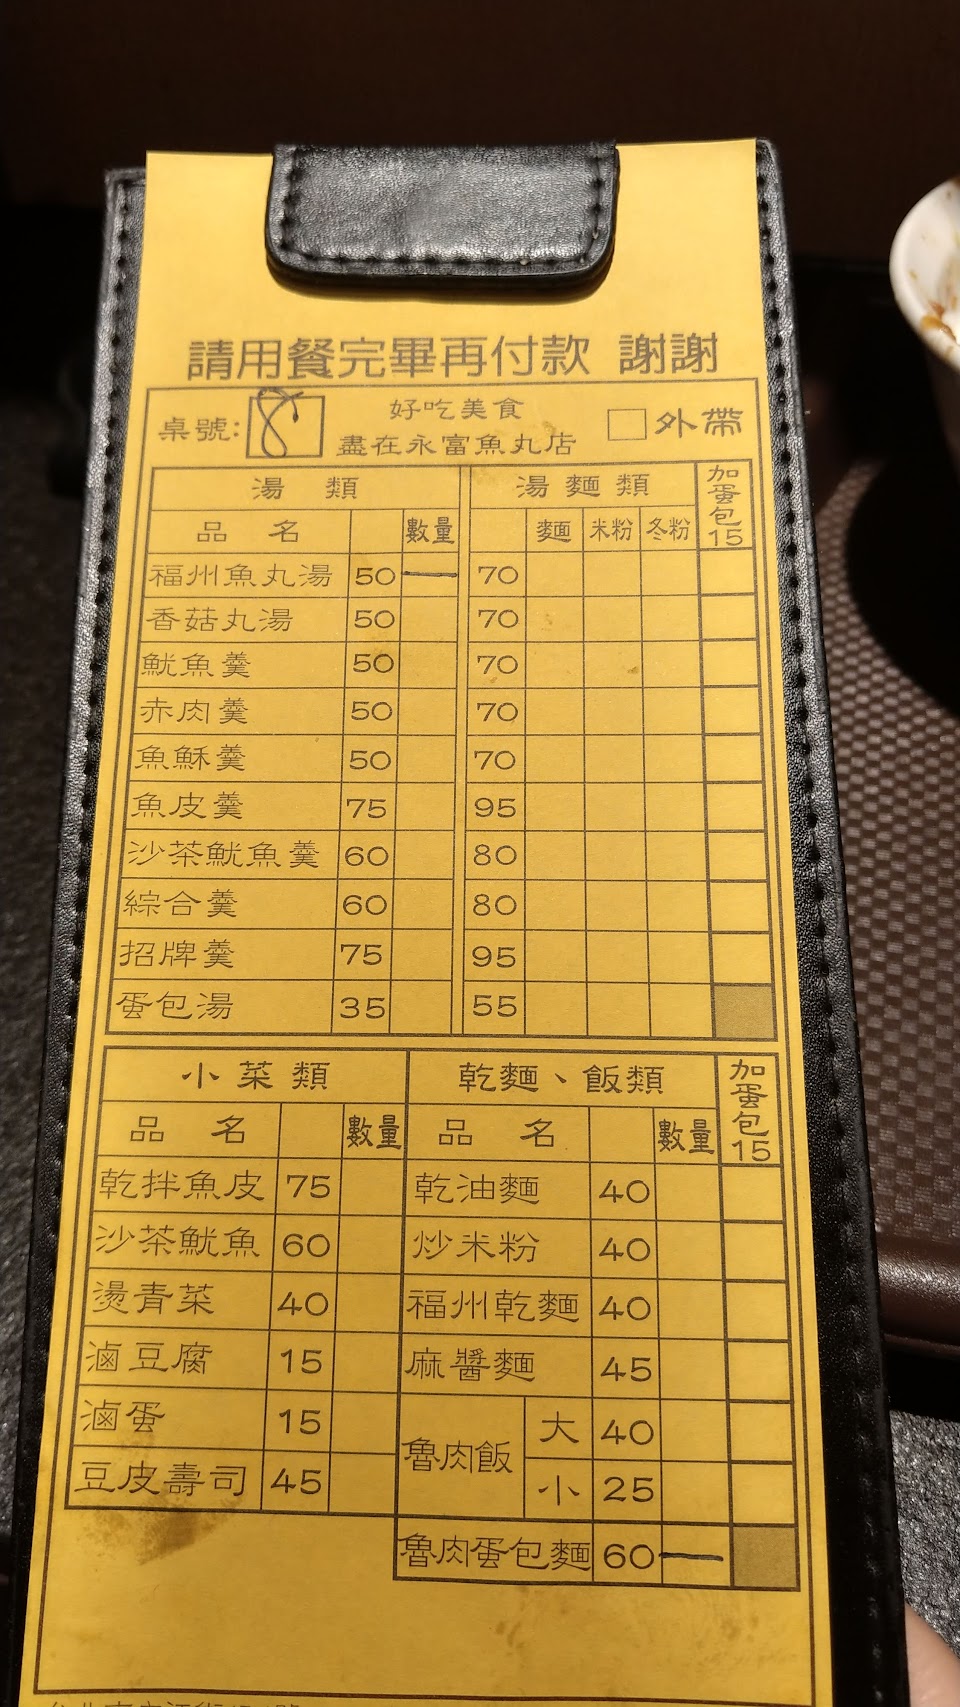 請用餐完畢再付款 謝謝
桌號: 8
好吃美食
盡在永富魚丸店
外帶
湯類 湯麵類 加蛋包15
品名 數量 麵 米粉 冬粉
福州魚丸湯 50 一 70
香菇丸湯 50 70
魷魚羹 50 70
赤肉羹 50 70
魚酥羹 50 70
魚皮羹 75 95
沙茶魷魚羹 60 80
綜合羹 60 80
招牌羹 75 95
蛋包湯 35 55
小菜類 乾麵、飯類 加蛋包15
品名 數量 品名 數量
乾拌魚皮 75 乾油麵 40
沙茶魷魚 60 炒米粉 40
燙青菜 40 福州乾麵 40
滷豆腐 15 麻醬麵 45
滷蛋 15 魯肉飯 大 40
豆皮壽司 45 小 25
魯肉蛋包麵 60 一